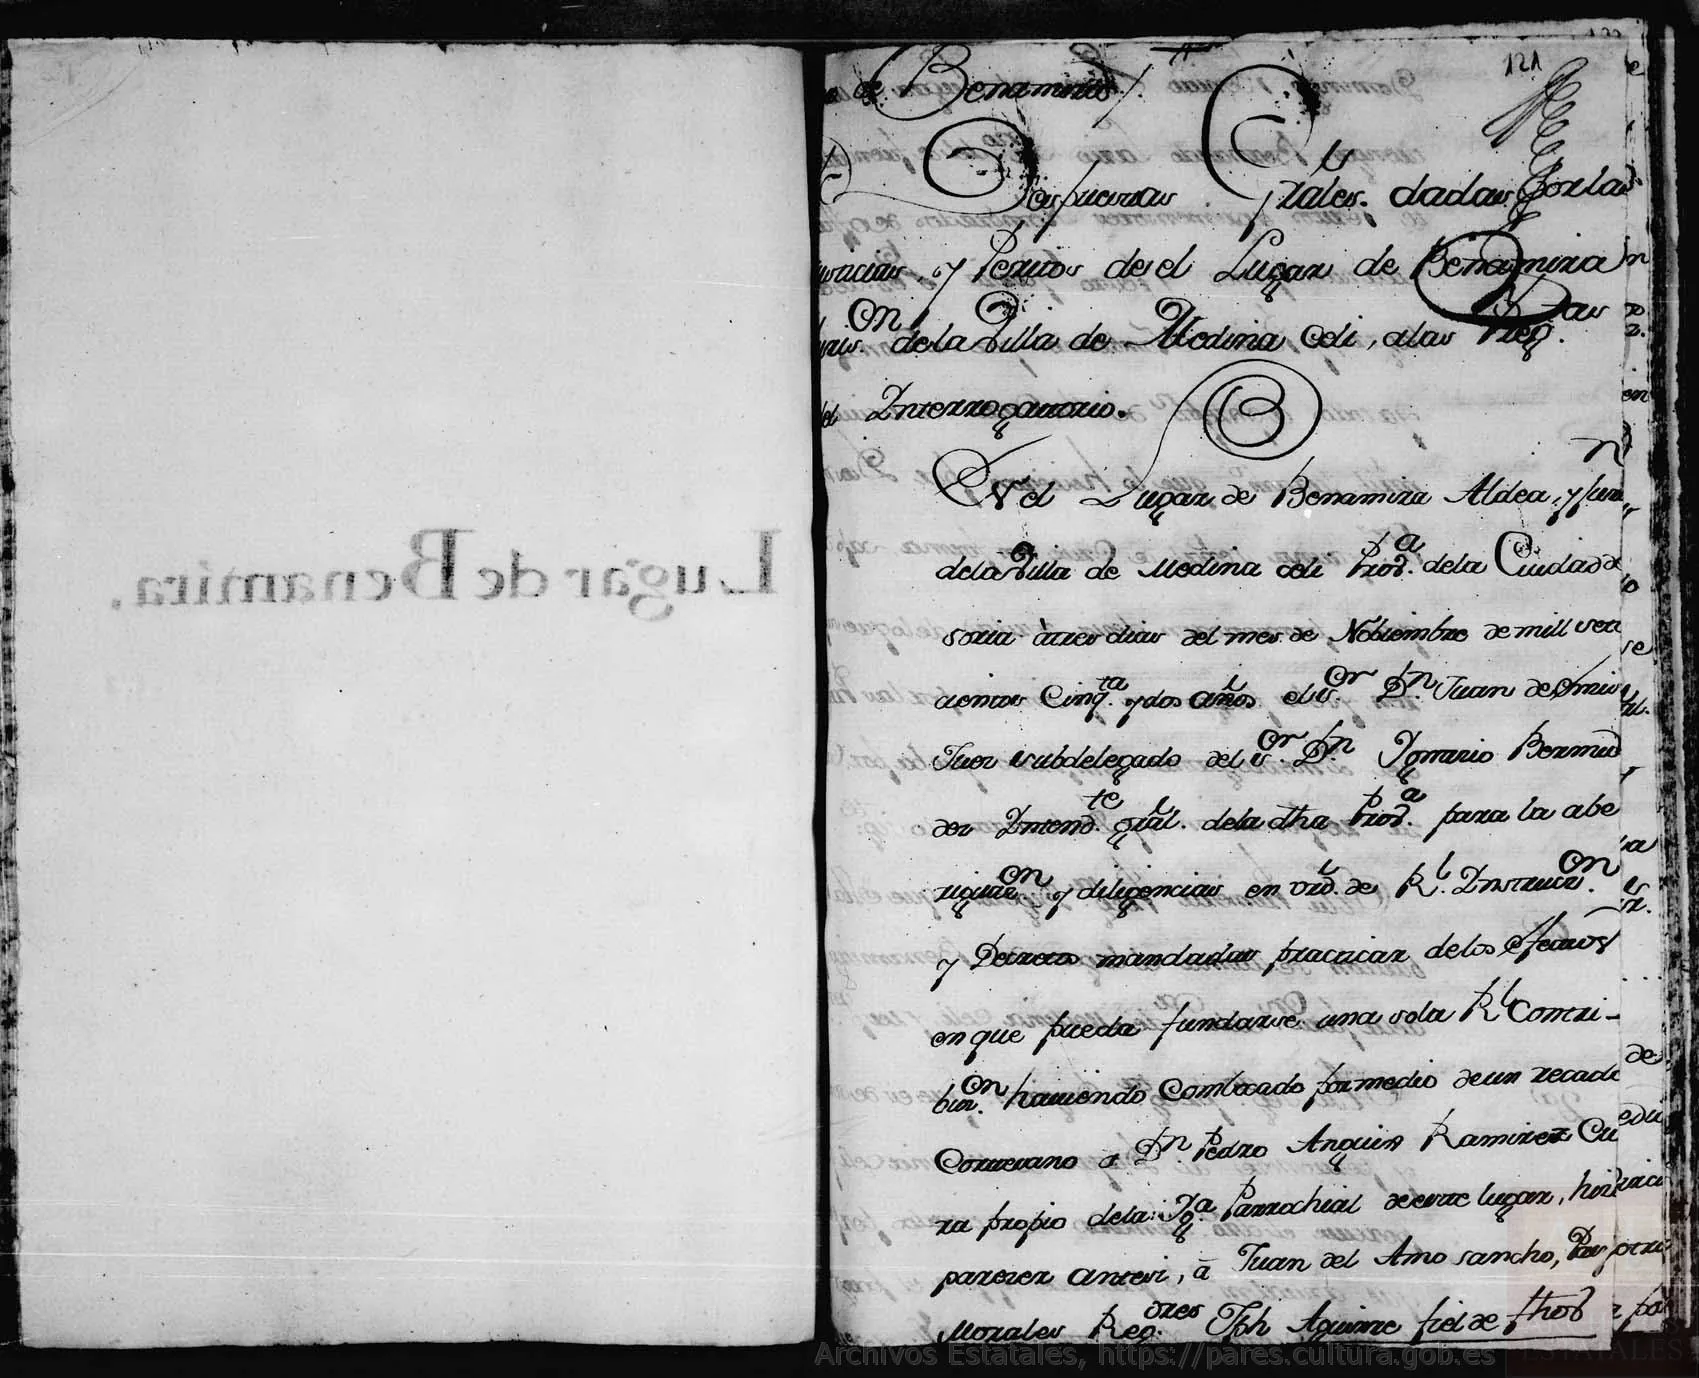 Lugar de Benamira.
121
de Benamira
Respuestas Grales. dadas Por las
usticias, y Peritos de el Lugar de Benamira
on de la Villa de Medina Celi, a las Preg.as
el Interrogatorio.
En el Lugar de Benamira Aldea, y Jur.n
de la Villa de Medina celi Prov.a de la Ciudad de
soria à tres dias del mes de Nobiembre de mill sete
cientos Cinq.ta y dos años el s.or D.n Juan de
Juez subdelegado del s.or D.n Ygnacio Bermud
dez Intend.te gral. de la dha Prov.a para la abe
riguaz.on y diligencias en vrd. de R.l Instrucz.on
y Decretos mandadas practicar de los efectos
en que pueda fundarse una sola R.l Contri-
buz.on haviendo Combocado por medio de un recado
Cortesano a D.n Pedro Anguita Ramirez Cu
ra propio de la Yg.a Parrochial de este lugar, hizo
parezer ante si, à Juan del Amo sancho,
Morales Reg.dores Jph Aguirre fiel de fhos
Archivos Estatales, https://pares.cultura.gob.es